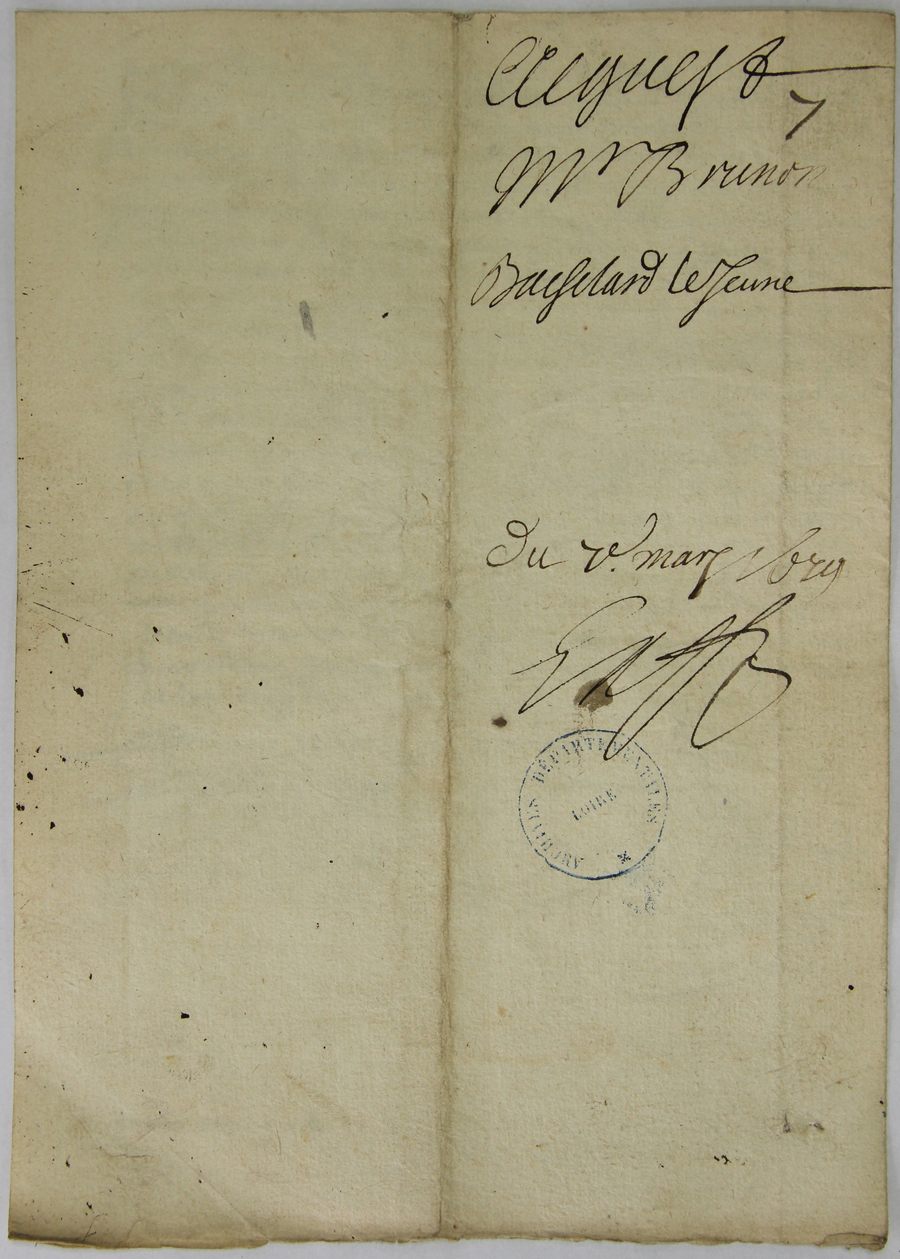 Acquest
7
Mr Brunon
Bachelard le Jeune
Du 7e. mars 1679
ARCHIVES DÉPARTEMENTALES
LOIRE